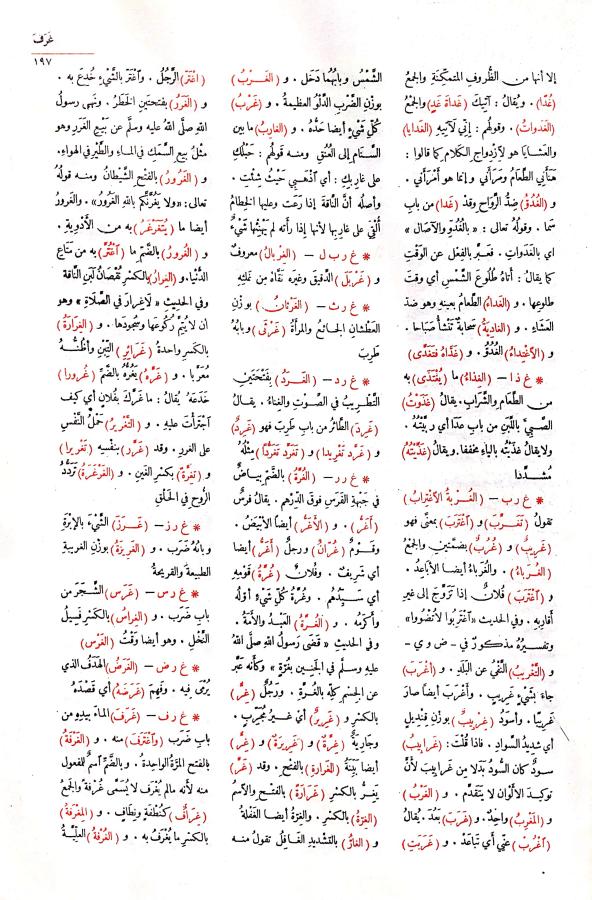 غَرَفَ
١٩٧
إلا أنها من الظُروف المتمكِّنة والجمعُ
(غُدًا) . ويُقالُ : آتيكَ (غَداةَ غدٍ) والجمْعُ
(الغَدَواتُ) . وقولهُم : إنّي لآتيهِ (الغَدايا)
والعَشايا هو لازْدِواجِ الكلام كما قالوا :
هَنَأنِي الطَّعامُ ومَرَأني وإنما هو أمْرَأني .
و (الغُدُوُّ) ضِدُّ الرَّواح وقد (غَدا) من بابِ
سَما . وقولُهُ تعالى : «بِالْغُدُوِّ وَالآصَالِ»
أي بالغَدَوَاتِ . فعَبَّر بالفِعْل عن الوَقْتِ
كما يقالُ : أتاهُ طُلوعَ الشَّمْسِ أي وقتَ
طُلوعِها . و (الغَداءُ) الطَّعامُ بعينِه وهو ضدّ
العَشاءِ . و (الغادِيَةُ) سَحابةٌ تَنْشأُ صَباحًا .
و (الاغْتِداءُ) الغُدُوُّ . و (غَدّاهُ فتَغَدَّى)
* غ ذ ا – (الغِذاءُ) ما (يُغْتَذى) به
من الطَّعامِ والشَّرابِ . يقالُ (غَذَوْتُ)
الصَّبيَّ باللَّبَنِ من باب عدا أي ربَّيْتُه .
ولا يقالُ غَذَيْتُه بالياءِ مخففا . ويقالُ (غَذَّيْتُه)
مُشدَّدا
* غ ر ب – (الغُرْبةُ الاغْتِرابُ)
تقولُ (تَغَرَّبَ) و (اغْتَرَبَ) بمعنًى فهو
(غَرِيبٌ) و (غُرُبٌ) بضمّتين والجَمْعُ
(الغُرباءُ) . والغُرَباءُ أيضا الأباعِدُ .
و (اغْتَرَبَ) فُلانٌ إذا تزوَّجَ إلى غيرِ
أقارِبِه . وفي الحديث «اغْتَرِبوا لا تُضْوُوا»
وتفسيرُهُ مذكورٌ في – ض و ي –
و (التَّغْريبُ) النَّفْيُ عن البَلَدِ . و (أغْرَبَ)
جاءَ بشَيْءٍ غَريبٍ . وأغْرَبَ أيضًا صارَ
غَريبًا . وأسودُ (غِرْبيبٌ) بوزْنِ قِنْديلٍ
أي شديدُ السَّوادِ . فاذا قُلْتَ : (غَرابيبُ)
سودٌ كانَ السُّودُ بَدَلًا من غَرابيبَ لأنَّ
توكيدَ الألوانِ لا يَتَقَدَّمُ . و (الغَرْبُ)
و (المَغْرِبُ) واحِدٌ . و (غَرَبَ) بَعُدَ . يُقالُ
(اغْرُبْ) عنّي أي تَباعَدْ . و (غَرَبَتِ)
الشَّمْسُ وبابُهُما دَخَلَ . و (الغَرْبُ)
بوزنِ الضَّرْبِ الدَّلْوُ العظيمةُ . و (غَرْبُ)
كلِّ شيءٍ أيضا حَدُّهُ . و (الغارِبُ) ما بين
السَّنامِ إلى العُنُقِ ومنه قولُهم : حَبْلُكِ
على غارِبكِ : أي اذْهَبي حَيْثُ شِئْتِ .
وأصلُه أنَّ النَّاقةَ إذا رَعَتْ وعليها الخِطامُ
أُلْقِيَ على غارِبها لأنها إذا رأته لم يَهْنِئْها شيءٌ
* غ ر ب ل – (الغِربالُ) معروفٌ
و (غَرْبَلَ) الدَّقيقَ وغيرَه نقّاهُ من نَخَلِه
* غ ر ث – (الغَرْثانُ) بوزنِ
العَطْشانِ الجائعُ والمرأةُ (غَرْثَى) وبابُهُ
طَرِبَ
* غ ر د – (الغَرَدُ) بفَتْحتَين
التَّطْريبُ في الصَّوتِ والغِناءِ . يقالُ
(غَرِدَ) الطَّائرُ من باب طَرِبَ فهو (غَرِدٌ)
و (غَرَّدَ تغْرِيدا) و (تَغَرَّدَ تَغَرُّدًا) مِثْلُهُ
* غ ر ر – (الغُرَّةُ) بالضَّمّ بياضٌ
في جَبْهةِ الفَرَسِ فوقَ الدِّرْهَم . يقالُ فَرسٌ
(أغَرُّ) . و (الأغَرُّ) أيضا الأبيَضُ .
وقَوْمٌ (غُرّانٌ) ورجلٌ (أغَرُّ) أيضا
أي شريفٌ . وفُلانٌ (غُرَّةُ) قومِهِ
أي سيّدُهم . وغُرَّةُ كلِّ شيْءٍ أوّلُه
وأكرَمُه . و (الغُرَّةُ) العَبْدُ والأَمَةُ .
وفي الحديثِ «قَضَى رَسُولُ اللهِ صَلَّى اللهُ
عليه وسلم في الجَنينِ بغُرَّةٍ» وكأنه عَبَّر
عن الجِسْمِ كلِّه بالغُرَّةِ . ورَجُلٌ (غِرٌّ)
بالكسْرِ و (غَريرٌ) أي غيرُ مُجَرِّبٍ .
وجاريةٌ (غِرَّةٌ) و (غَريرَةٌ) و (غِرٌّ)
أيضا بَيِّنَةُ (الغَرارةِ) بالفتح . وقد (غَرَّ)
يَغِرُّ بالكَسْرِ (غَرَارَةً) بالفتحِ والاسمُ
(الغِرّةُ) بالكَسْرِ . والغِرّةُ أيضا الغَفْلةُ
و (الغارُّ) بالتشديدِ الغافِلُ تقولُ منه
(اغْتَرَّ) الرَّجُلُ . واغْتَرَّ بالشَّيْءِ خُدِعَ به .
و (الغَرَرُ) بفَتْحتين الخَطَرُ . ونَهى رسولُ
الله صلَّى اللهُ عليه وسلَّم عن بَيعِ الغَرَرِ وهو
مثلُ بيعِ السَّمَكِ في الماءِ والطَّيْرِ في الهواءِ .
و (الغَرُورُ) بالفَتْح الشَّيطانُ ومنه قولُه
تعالى: «ولا يَغُرَّنَّكُمْ باللهِ الغَرُورُ» . والغَرورُ
أيضا ما (يُتَغَرْغَرُ) به من الأَدْوِيةِ .
و (الغُرورُ) بالضَّمّ ما (اغْتُرَّ) به من مَتاعِ
الدُّنيا. و (الغِرارُ) بالكَسْرِ نُقْصانُ لَبَنِ النَّاقةِ
وفي الحديثِ «لا غِرارَ في الصَّلاةِ» وهو
ان لا يُتِمَّ رُكُوعَها وسُجودَها . و (الغِرارَةُ)
بالكَسرِ واحدةُ (غَرائرِ) التِّبْنِ وأظُنُّه
مُعَرَّبا . و (غَرَّهُ) يَغُرُّه بالضَّمّ (غُرورا)
خدَعَهُ يُقالُ : ما غَرَّكَ بفُلانٍ أي كيفَ
اجْتَرأْتَ عليه . و (التَّغْريرُ) حَمْلُ النَّفْسِ
على الغَررِ . وقد (غَرَّرَ) بنفْسِهِ (تَغْريرا)
و (تَغِرَّةً) بكَسْرِ الغَين . و (الغَرْغَرَةُ) تَرَدُّدُ
الرُّوحِ في الحَلْقِ
* غ ر ز – (غَرَزَ) الشَّيْءَ بالإبْرةِ
وبابُهُ ضَرَبَ . و (الغَريزَةُ) بوزنِ الغريبةِ
الطبيعةُ والقريحةُ
* غ ر س – (غَرَسَ) الشَّجَرَ من
بابِ ضَرَبَ . و (الغِراسُ) بالكَسْرِ فَسيلُ
النَّخْلِ . وهو أيضا وَقْتُ (الغَرْسِ)
* غ ر ض – (الغَرَضُ) الهَدَفُ الذي
يُرْمَى فيه . وفَهِمَ (غَرَضَهُ) أي قَصْدَهُ
* غ ر ف – (غَرَفَ) الماءَ بيدِه من
بابِ ضَرَبَ و (اغْتَرَفَ) منه . و (الغَرْفةُ)
بالفتح المَرّةُ الواحِدةُ . و بالضّمّ اسمٌ للمفعولِ
منه لأنّه مالم يُغْرَفْ لا يُسَمَّى غُرْفةً والجَمعُ
(غِرافٌ) كنُطْفَةٍ ونِطافٍ . و (المِغْرفةُ)
بالكَسرِ ما يُغْرَفُ به . و (الغُرْفةُ) العِلِّيّةُ